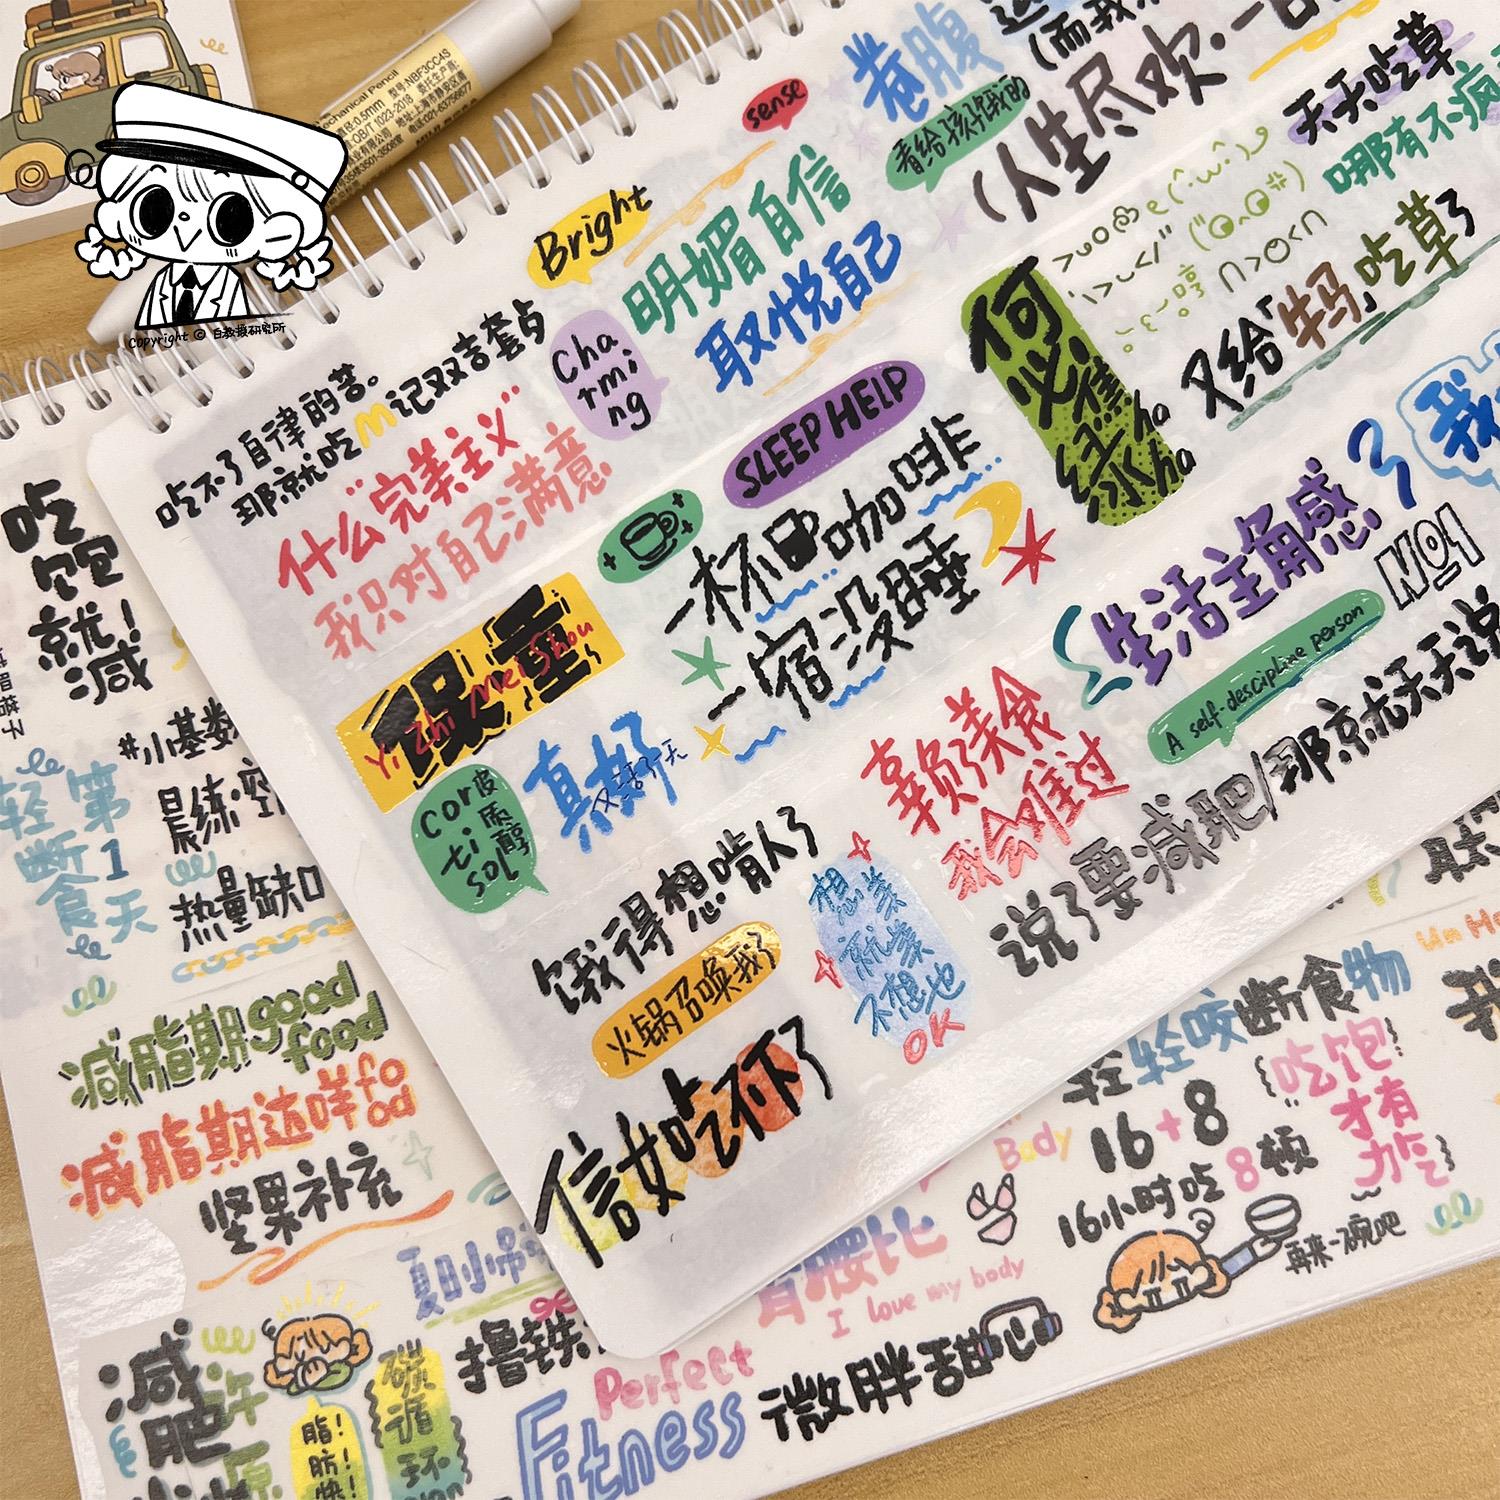 Mechanical Pencil
型号:NBF3CC4S
Copyright © 白教授研究所
吃不了自律的苦。
那就吃M记双吉套点
什么"完美主义"
我只对自己满意
Bright
明媚自信
取悦自己
Cha
rmi
ng
sense
卷腹
(而我
(人生尽欢·一
天天吃草
哪有不疯
又给「牛马」吃草了
何
必
焦
绿
ha ha
SLEEP HELP
一杯咖啡
一宿没睡
Yi Zhi Mei Shou
Cor
ti
sol
皮
质
醇
真好
又活一天
生活主角感
NO1
A self-descipline person
辜负美食
我会难过
说了要减肥/那就天天说
饿得想啃人了
火锅召唤我了
信女吃不下了
想美
就美
不想也
OK
吃
饱
就
减!
#小基数
晨练·空
热量缺口
轻断食
第1天
减脂期good
food
减脂期达咩fo
od
坚果补充
减
肥
碳
循
环
脂!
肪!
快!
撸铁
Perfect
Fitness
微胖甜心
腰比
I love my body
Body
轻轻咬断食物
16+8
16小时吃8顿
吃饱
才有
力气
再来一碗吧